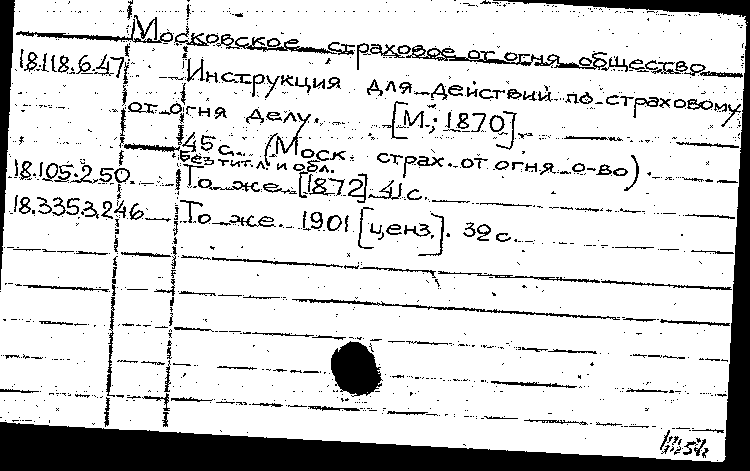 Московское страховое от огня общество
18.118.6.47 Инструкция для действий по страховому
от огня делу. [М.; 1870].
45 с. (Моск. страх. от огня о-во).
без тит. л. и обл.
18.105.2.50. То же. [1872]. 41 с.
18.335.3.246 То же. 1901 [ценз.]. 32 с.